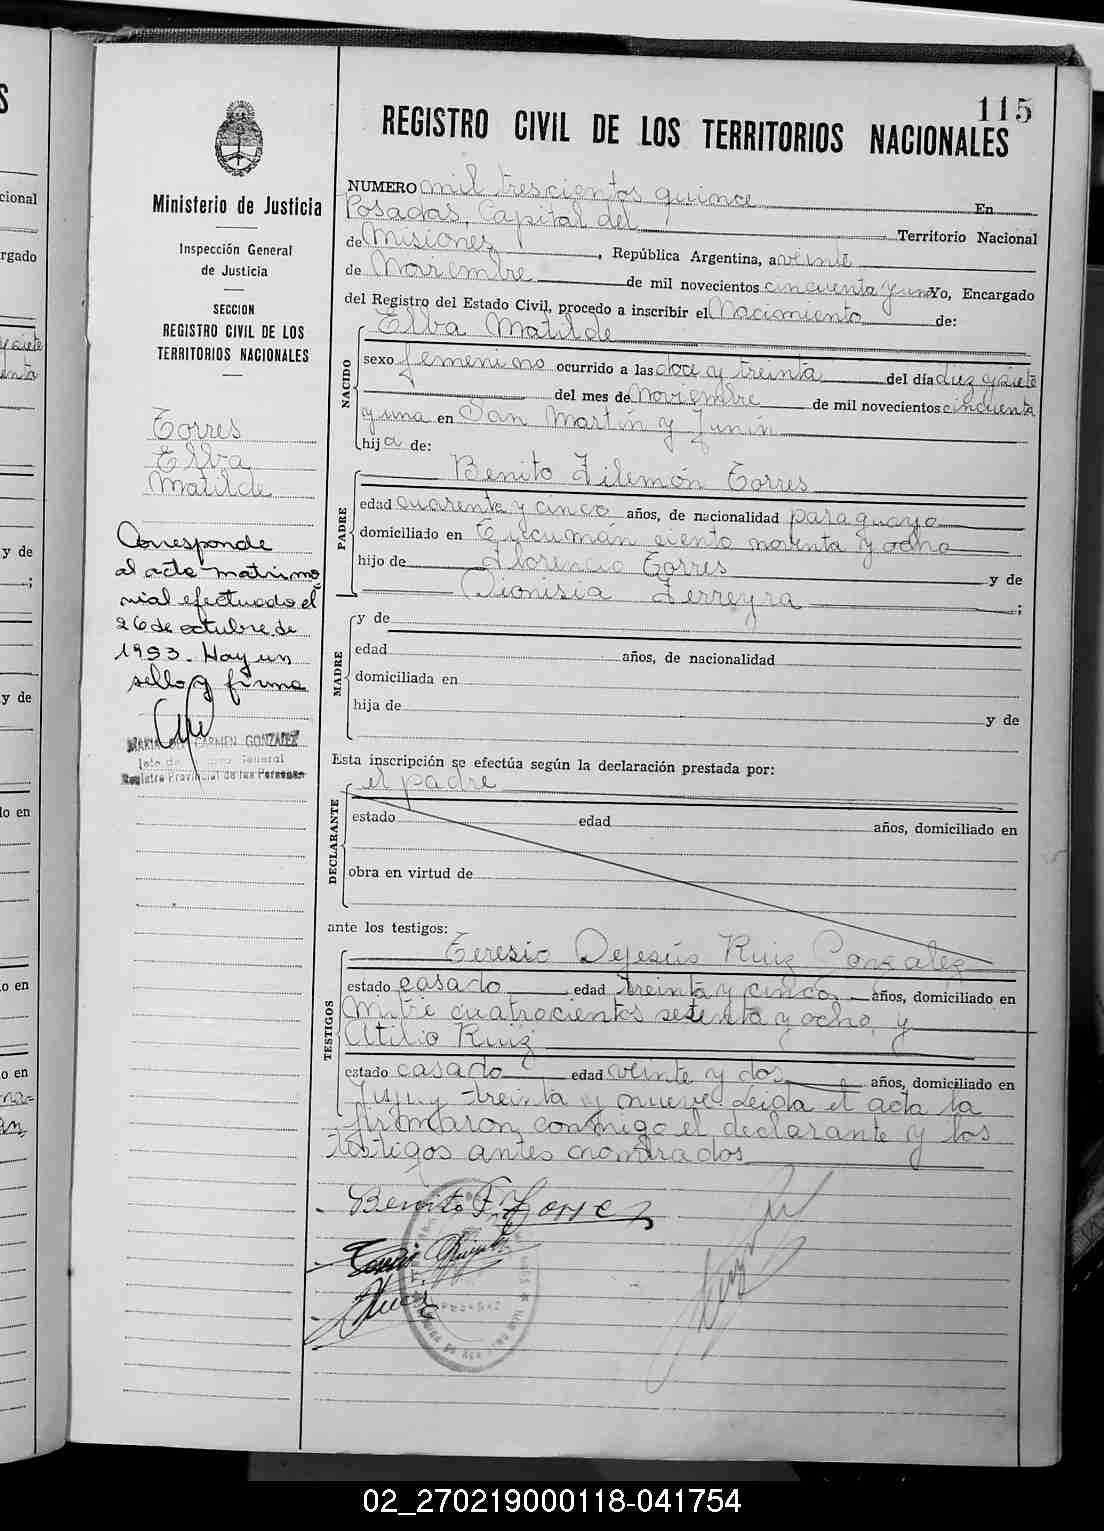 115
REGISTRO CIVIL DE LOS TERRITORIOS NACIONALES
Ministerio de Justicia
Inspección General
de Justicia
SECCION
REGISTRO CIVIL DE LOS
TERRITORIOS NACIONALES
Torres
Elba
Matilde
Corresponde
al acta matrimo
nial efectuado el
26 de octubre de
1993. Hay un
sello y firma
MARIA DEL CARMEN GONZALEZ
General
Registro Provincial de las Personas
NUMERO mil trescientos quince En
Posadas, Capital del Territorio Nacional
de Misiones, República Argentina, a veinte
de Noviembre de mil novecientos cincuenta y uno Yo, Encargado
del Registro del Estado Civil, procedo a inscribir el Nacimiento de:
Elba Matilde
NACIDO
sexo femenino ocurrido a las doce y treinta del día diez y siete
del mes de Noviembre de mil novecientos cincuenta
y uno en San Martín y Junín
hija de:
Benito Filemón Torres
PADRE
edad cuarenta y cinco años, de nacionalidad paraguayo
domiciliado en Tucumán ciento noventa y ocho
hijo de Florencio Torres y de
Dionisia Ferreyra ;
MADRE
y de
edad años, de nacionalidad
domiciliada en
hija de y de
Esta inscripción se efectúa según la declaración prestada por:
el padre
DECLARANTE
estado edad años, domiciliado en
obra en virtud de
ante los testigos:
Teresio Dejesús Ruiz Gonzalez
TESTIGOS
estado casado edad treinta y cinco años, domiciliado en
Mitre cuatrocientos setenta y ocho, y
Atilio Ruiz
estado casado edad veinte y dos años, domiciliado en
Jujuy treinta y nueve. Leída el acta la
firmaron conmigo el declarante y los
testigos antes nombrados
Benito F. Torres
02_270219000118-041754